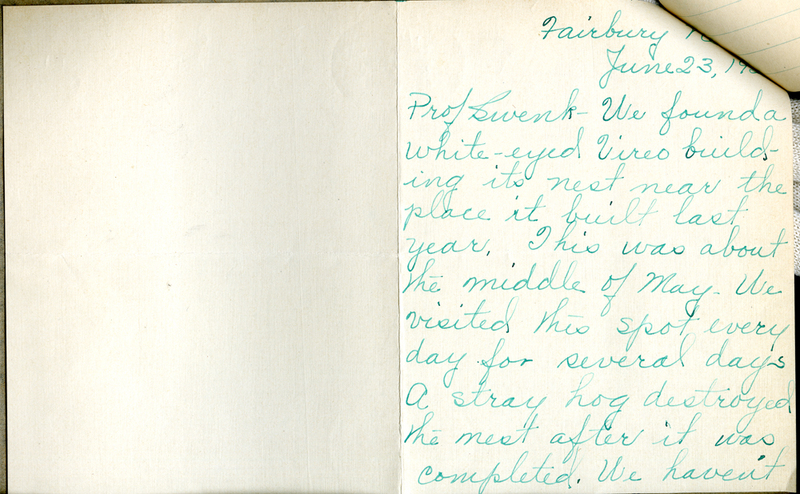 Fairbury
June 23, 19
Prof Swenk- We found a
white-eyed Vireo build-
ing its nest near the
place it built last
year. This was about
the middle of May. We
visited this spot every
day for several days
A stray hog destroyed
the nest after it was
completed. We haven't